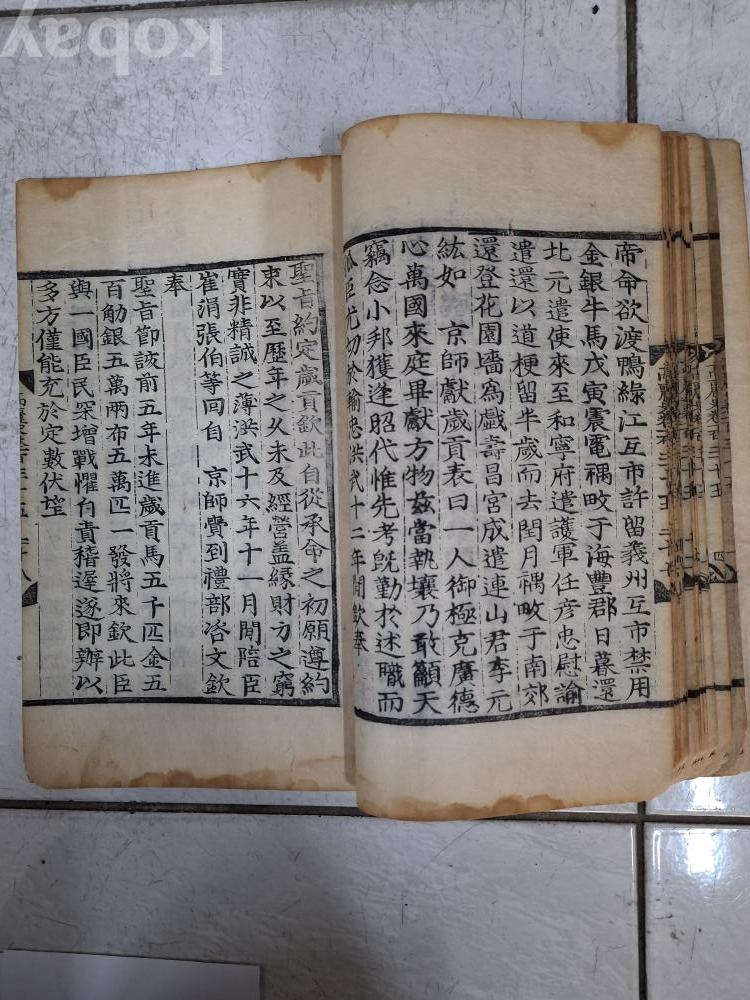 kobay
帝命欲渡鴨綠江互市許留義州互市禁用
金銀牛馬戊寅震電禑畋于海豐郡日暮還
北元遣使來至和寧府遣護軍任彦忠慰諭
遣還以道梗留半歲而去閏月禑畋于南郊
還登花園墻爲戱壽昌宮成遣連山君李元
紘如 京師獻歲貢表曰一人御極克廣德
心萬國來庭畢獻方物玆當執壤乃敢籲天
竊念小邦獲逢昭代惟先考旣勤於述職而
臣尤切於輸忠洪武十二年閒欽奉
聖旨約定歲貢欽此自從承命之初願遵約
束以至歷年之久未及經營盖緣財力之窮
實非精誠之薄洪武十六年十一月閒陪臣
崔涓張伯等回自 京師賫到禮部咨文欽
奉
聖旨節該前五年未進歲貢馬五千匹金五
百觔銀五萬兩布五萬匹一發將來欽此臣
與一國臣民深增戰懼自責稽遲遂卽辦以
多方僅能充於定數伏望